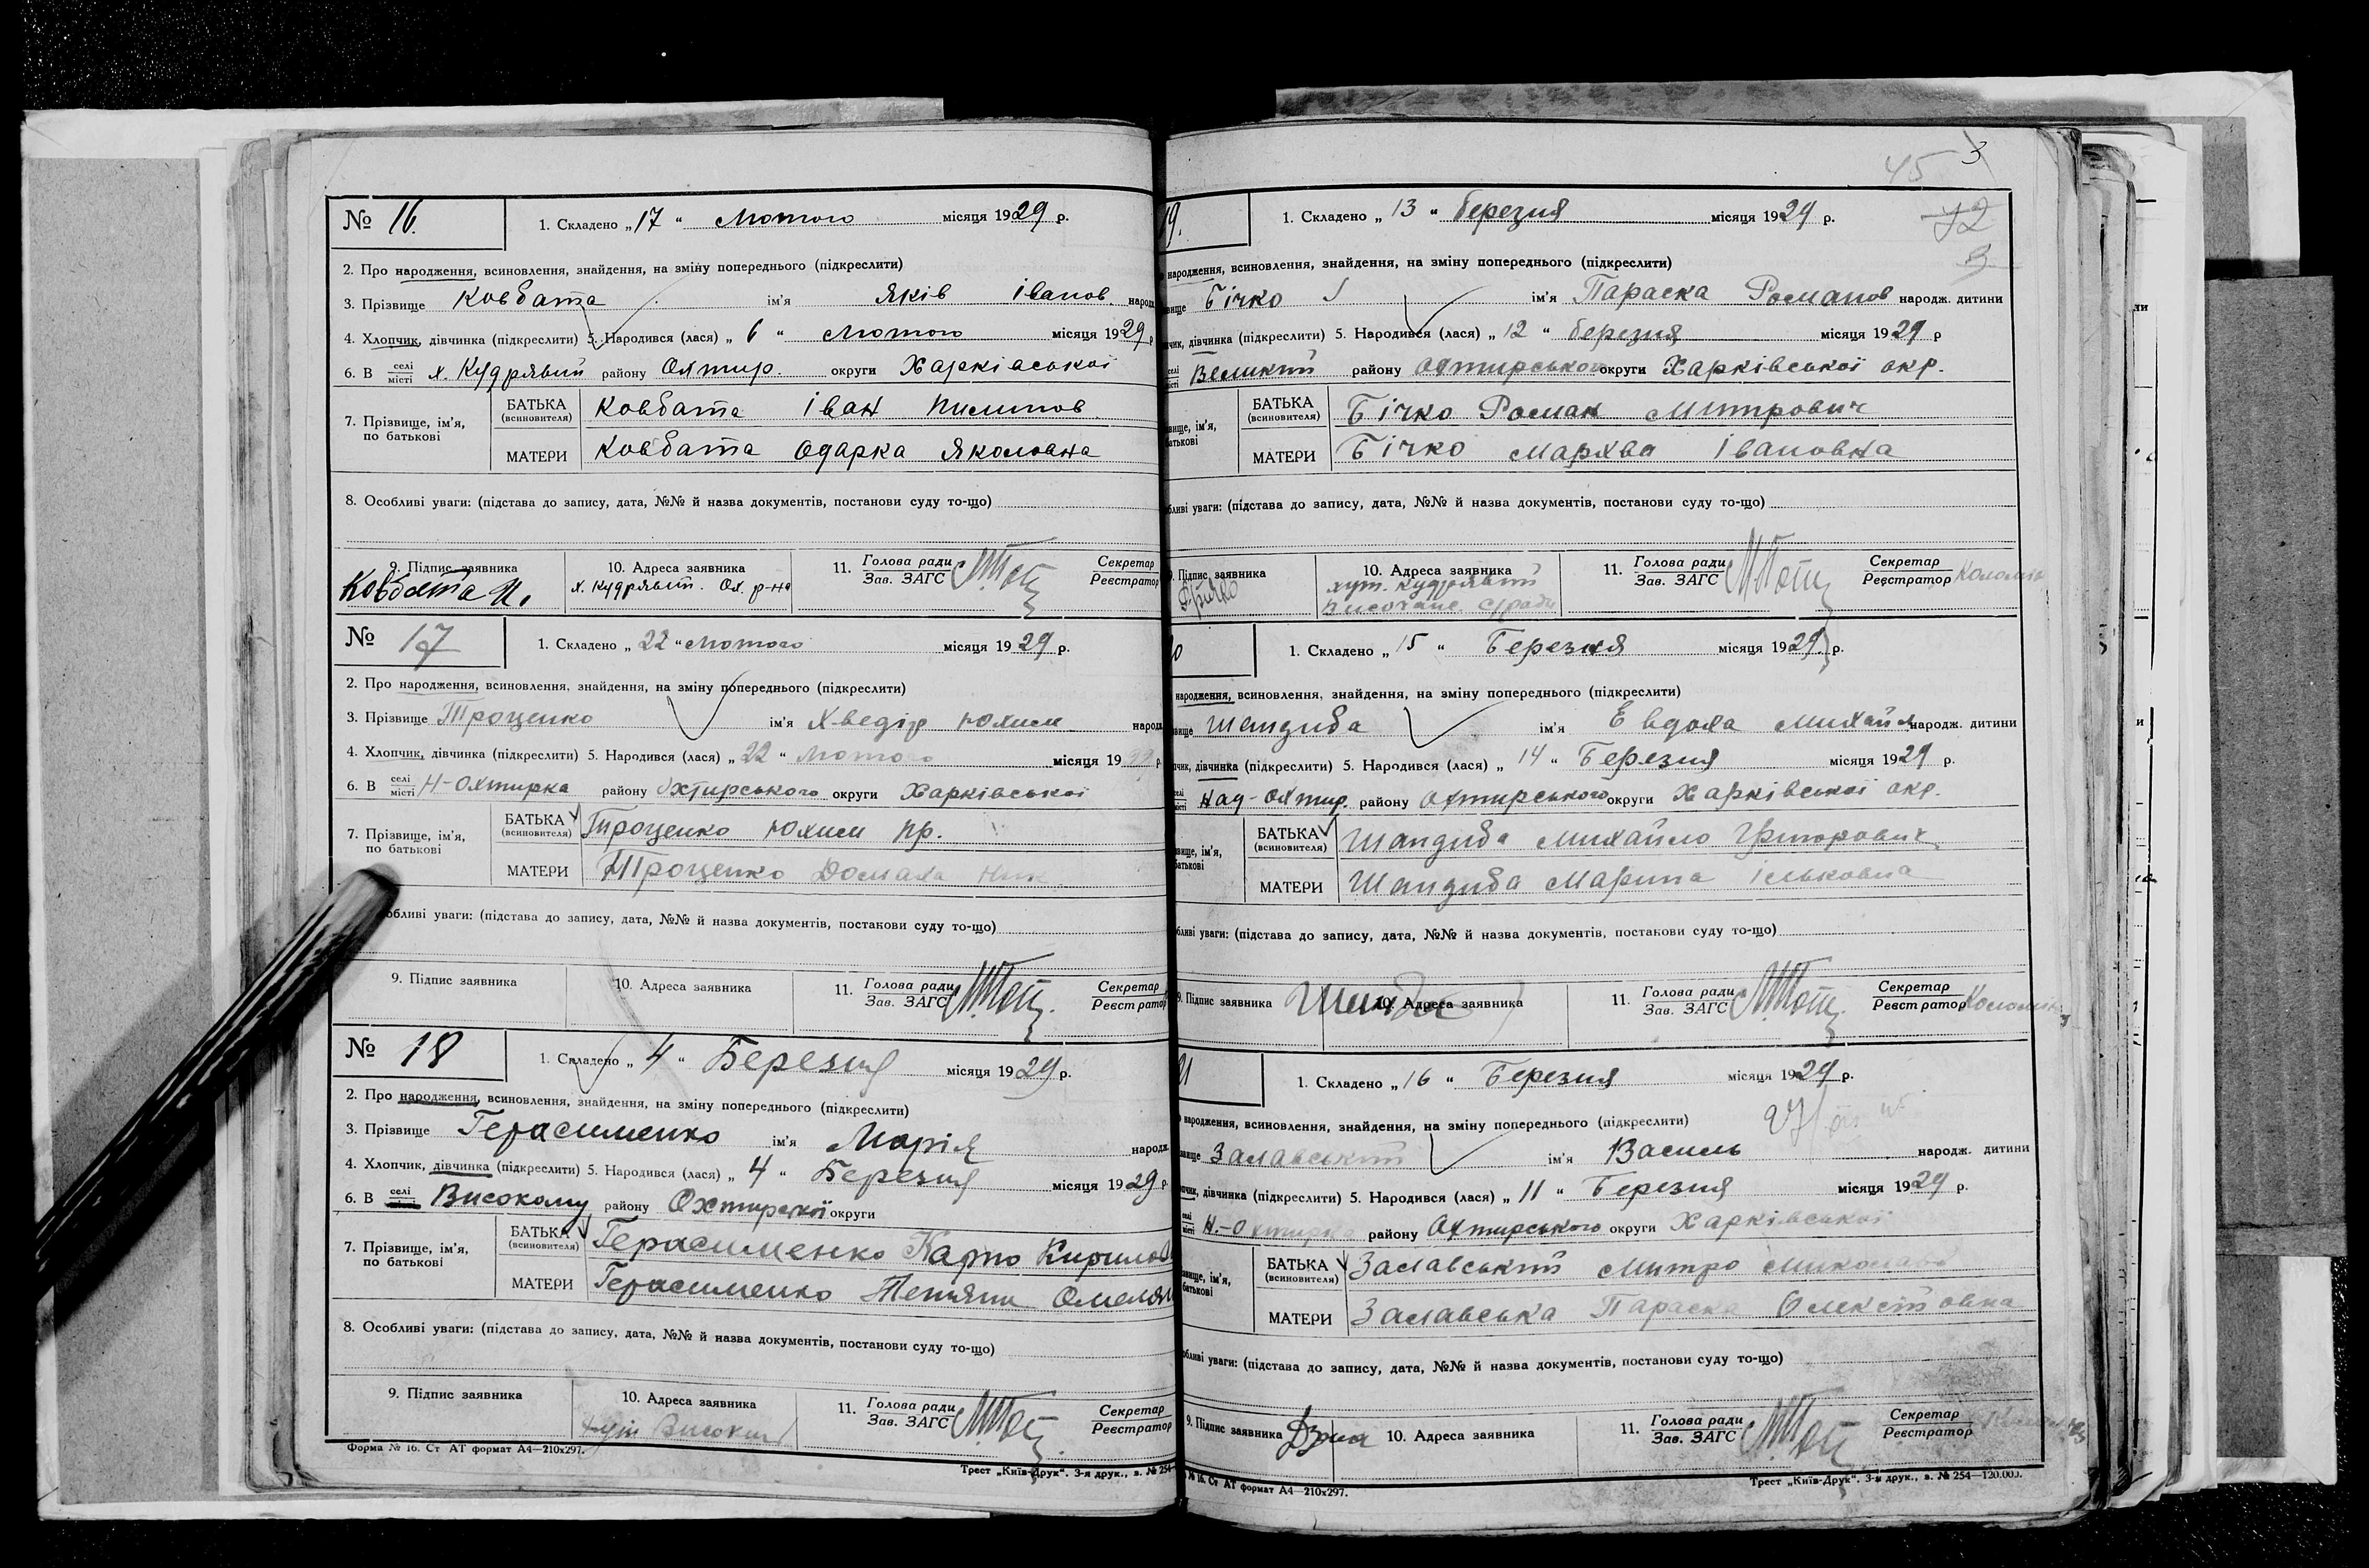 № 16.
1. Складено „17“ Лютого місяця 1929 р.
2. Про народження, всиновлення, знайдення, на зміну попереднього (підкреслити)
3. Прізвище Ковбата ім'я Яків Іванов. народж
4. Хлопчик, дівчинка (підкреслити) 5. Народився (лася) „6“ Лютого місяця 1929 р
6. В селі місті х. Кудрявий району Охтир. округи Харківської
7. Прізвище, ім'я, по батькові
БАТЬКА (всиновителя) Ковбата Іван Пилипов
МАТЕРИ Ковбата Одарка Яколовна
8. Особливі уваги: (підстава до запису, дата, №№ й назва документів, постанови суду то-що)
9. Підпис заявника Ковбата И.
10. Адреса заявника х. Кудрявий. Ох. р-на
11. Голова ради Зав. ЗАГС
Секретар Реєстратор
№ 17
1. Складено „22“ Лютого місяця 1929 р.
2. Про народження, всиновлення, знайдення, на зміну попереднього (підкреслити)
3. Прізвище Троценко ім'я Хведір Юхим народж
4. Хлопчик, дівчинка (підкреслити) 5. Народився (лася) „22“ Лютого місяця 1929 р
6. В селі місті Н-Охтирка району Охтирського округи Харківської
7. Прізвище, ім'я, по батькові
БАТЬКА (всиновителя) Троценко Юхим Пр.
МАТЕРИ Троценко Домаха Ник
обливі уваги: (підстава до запису, дата, №№ й назва документів, постанови суду то-що)
9. Підпис заявника
10. Адреса заявника
11. Голова ради Зав. ЗАГС
Секретар Реєстратор
№ 18
1. Складено „4“ Березня місяця 1929 р.
2. Про народження, всиновлення, знайдення, на зміну попереднього (підкреслити)
3. Прізвище Герасименко ім'я Марія народж
4. Хлопчик, дівчинка (підкреслити) 5. Народився (лася) „4“ Березня місяця 1929 р.
6. В селі Високому району Охтирської округи
7. Прізвище, ім'я, по батькові
БАТЬКА (всиновителя) Герасименко Карпо Кирилов
МАТЕРИ Герасименко Тетяна Омелян
8. Особливі уваги: (підстава до запису, дата, №№ й назва документів, постанови суду то-що)
9. Підпис заявника
10. Адреса заявника Високий
11. Голова ради Зав. ЗАГС
Секретар Реєстратор
Форма № 16. Ст АТ формат А4—210х297.
Трест „Київ-Друк“. 3-я друк., з. № 254
45 3
42
3
19.
1. Складено „13“ березня місяця 1929 р.
народження, всиновлення, знайдення, на зміну попереднього (підкреслити)
вище Бічко ім'я Параска Романов народж. дитини
пчик, дівчинка (підкреслити) 5. Народився (лася) „12“ березня місяця 1929 р
селі місті Великий району Охтирського округи Харківської окр.
вище, ім'я, батькові
БАТЬКА (всиновителя) Бічко Роман Митрович
МАТЕРИ Бічко Мархва Івановна
бливі уваги: (підстава до запису, дата, №№ й назва документів, постанови суду то-що)
9. Підпис заявника
10. Адреса заявника хут. Кудрявий
11. Голова ради Зав. ЗАГС
Секретар Реєстратор
1. Складено „15“ Березня місяця 1929 р.
народження, всиновлення, знайдення, на зміну попереднього (підкреслити)
вище Шандиба ім'я Евдоха Михайл народж. дитини
пчик, дівчинка (підкреслити) 5. Народився (лася) „14“ Березня місяця 1929 р.
селі місті Над-Охтир. району Охтирського округи Харківської окр.
вище, ім'я, батькові
БАТЬКА (всиновителя) Шандиба Михайло Григорович
МАТЕРИ Шандиба Марина Ільковна
бливі уваги: (підстава до запису, дата, №№ й назва документів, постанови суду то-що)
9. Підпис заявника
10. Адреса заявника
11. Голова ради Зав. ЗАГС
Секретар Реєстратор
21
1. Складено „16“ Березня місяця 1929 р.
народження, всиновлення, знайдення, на зміну попереднього (підкреслити)
вище Заславський ім'я Василь народж. дитини
пчик, дівчинка (підкреслити) 5. Народився (лася) „11“ Березня місяця 1929 р.
селі місті Н.-Охтирка району Охтирського округи Харківської
вище, ім'я, батькові
БАТЬКА (всиновителя) Заславський Митро Миколаев
МАТЕРИ Заславська Параска Олексіовна
обливі уваги: (підстава до запису, дата, №№ й назва документів, постанови суду то-що)
9. Підпис заявника
10. Адреса заявника
11. Голова ради Зав. ЗАГС
Секретар Реєстратор
№ 16. Ст АТ формат А4—210х297.
Трест „Київ-Друк“. 3-я друк., з. № 254—120.000.